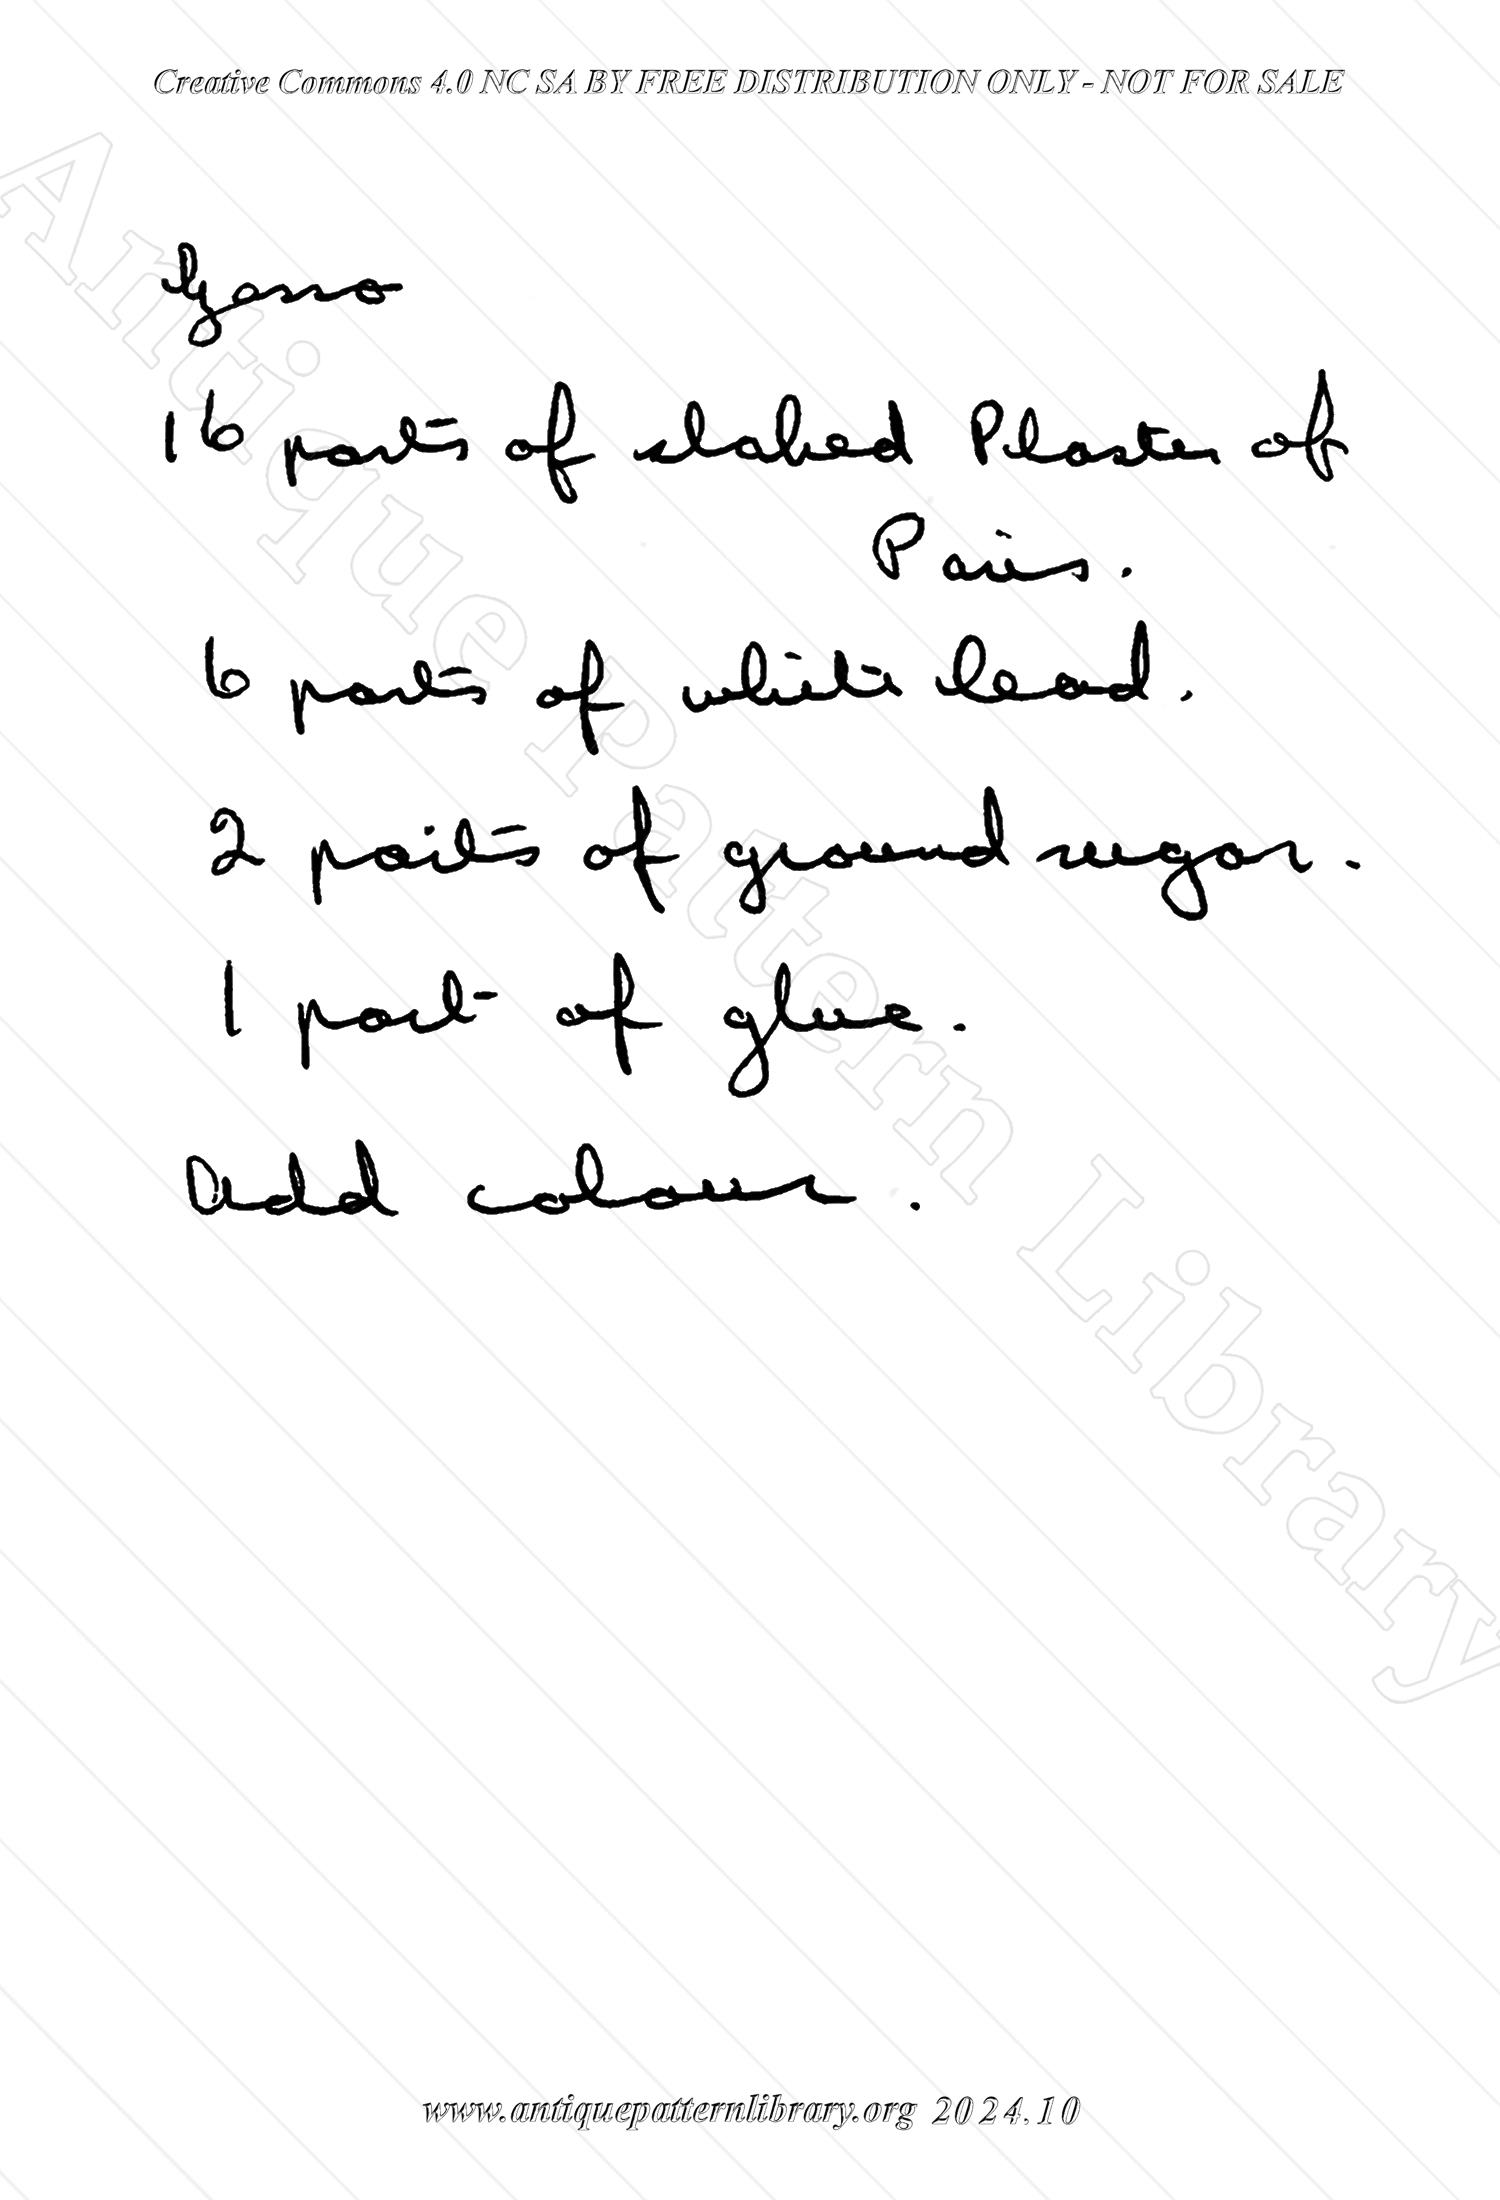 Creative Commons 4.0 NC SA BY FREE DISTRIBUTION ONLY - NOT FOR SALE
Gesso
16 parts of slaked Plaster of
Paris.
6 parts of white lead.
2 parts of ground sugar.
1 part of glue.
Add colour.
Antique Pattern Library
www.antiquepatternlibrary.org 2024.10